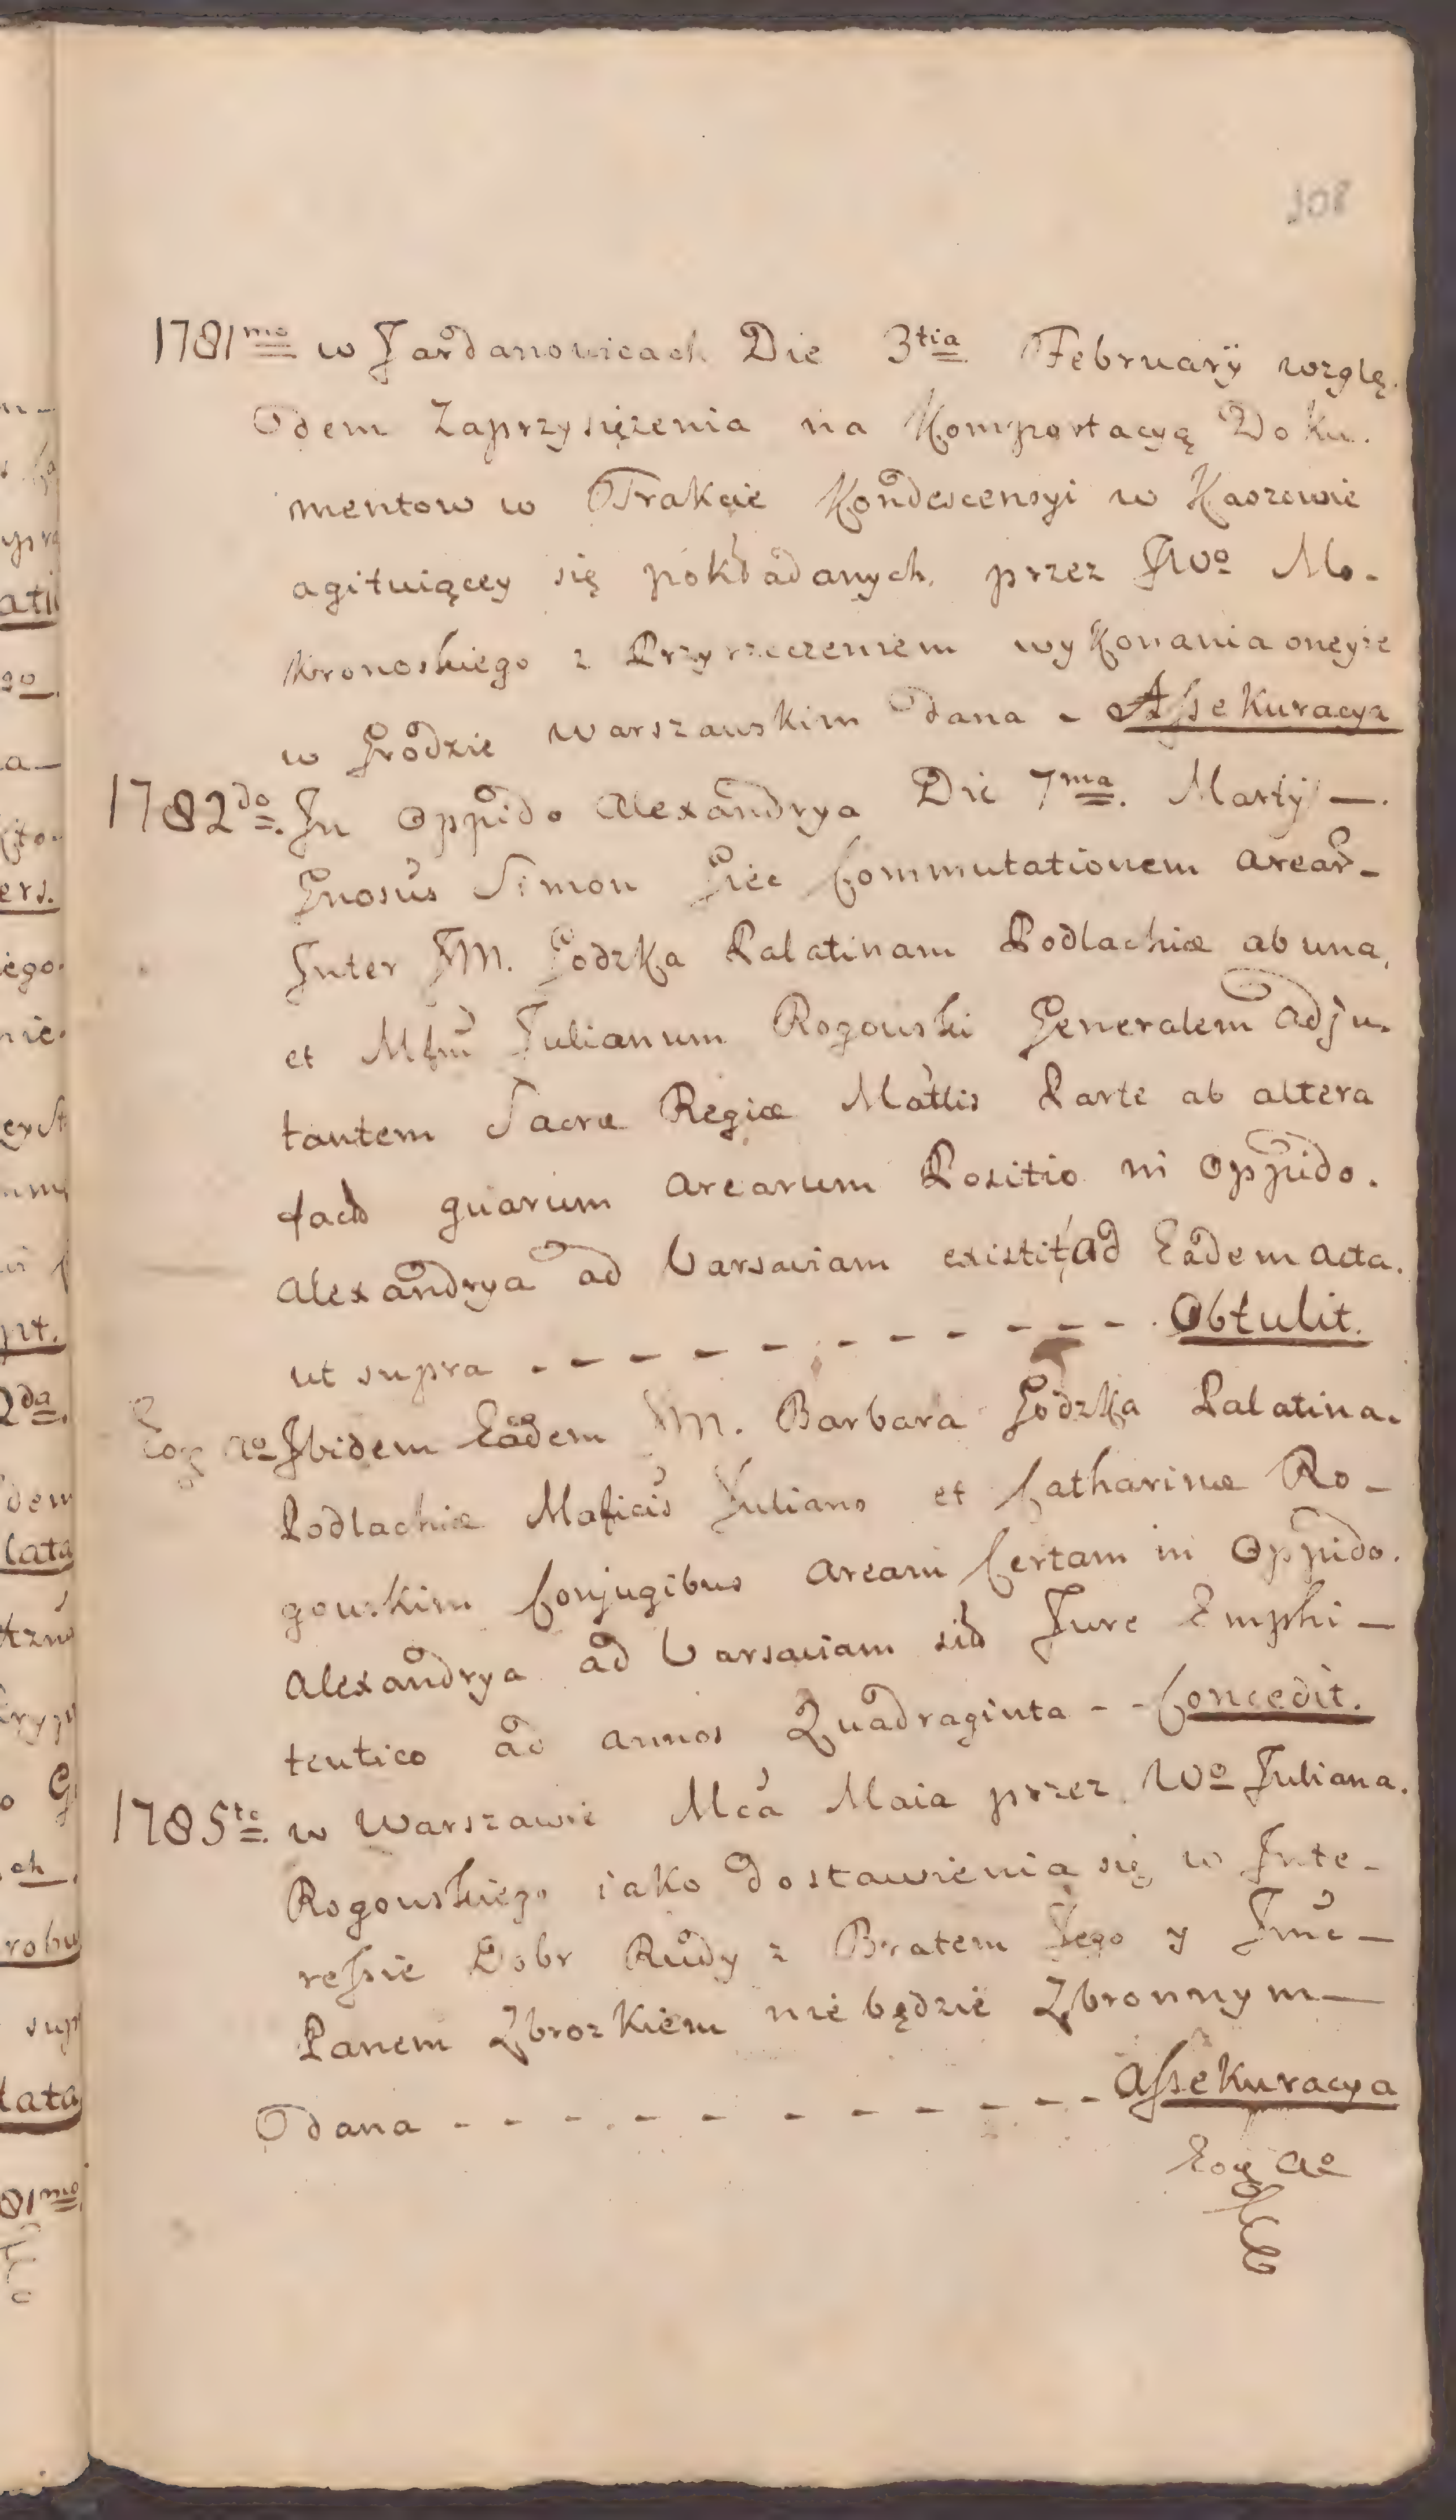 108
1781mo w Jardanowicach Die 3tia Februarÿ wzglę.
dem Zaprzysiężenia na Komportacyą Doku.
mentow w Trakcie Kondescensyi w Kaszewie
agituiącey się pokładanych. przez JWo Mo.
kronoskiego z Przyrzeczeniem wykonania oneyże
w Grodzie Warszawskim dana - Assekuracya
1782do. In Oppido Alexandrya Die 7ma. Martÿ —.
Gnosus Simon Giec Commutationem Arear-
Inter JM. Godzka Palatinam Podlachiæ ab una,
et Mfm Julianum Rogowski Generalem Adju.
tantem Sacræ Regiæ Mattis Parte ab altera
quarum Arearum Positio in Oppido.
Alexandrya ad Varsaviam existit, ad Eadem Acta.
ut supra - - - - - - - - - - - . Obtulit.
Eoq Ao Ibidem Eadem JM. Barbara Godzka Palatina.
Podlachiæ Maficis Juliano et Catharinæ Ro-
gowskim Conjugibus Aream Certam in Oppido.
Alexandrya ad Varsaviam sitā Jure Emphi-
teutico ad annos Quadraginta - - Concedit.
1785to. w Warszawie Mca Maia przez Wo Juliana.
Rogowskiego iako dostawienia się w Inte-
ressie Dobr Rudy z Bratem Jego y Jmc-
Panem Zbrozkiem nie będzie Zbronnym—
dana - - - - - - - - - - - Assekuracya
Eoq Ao